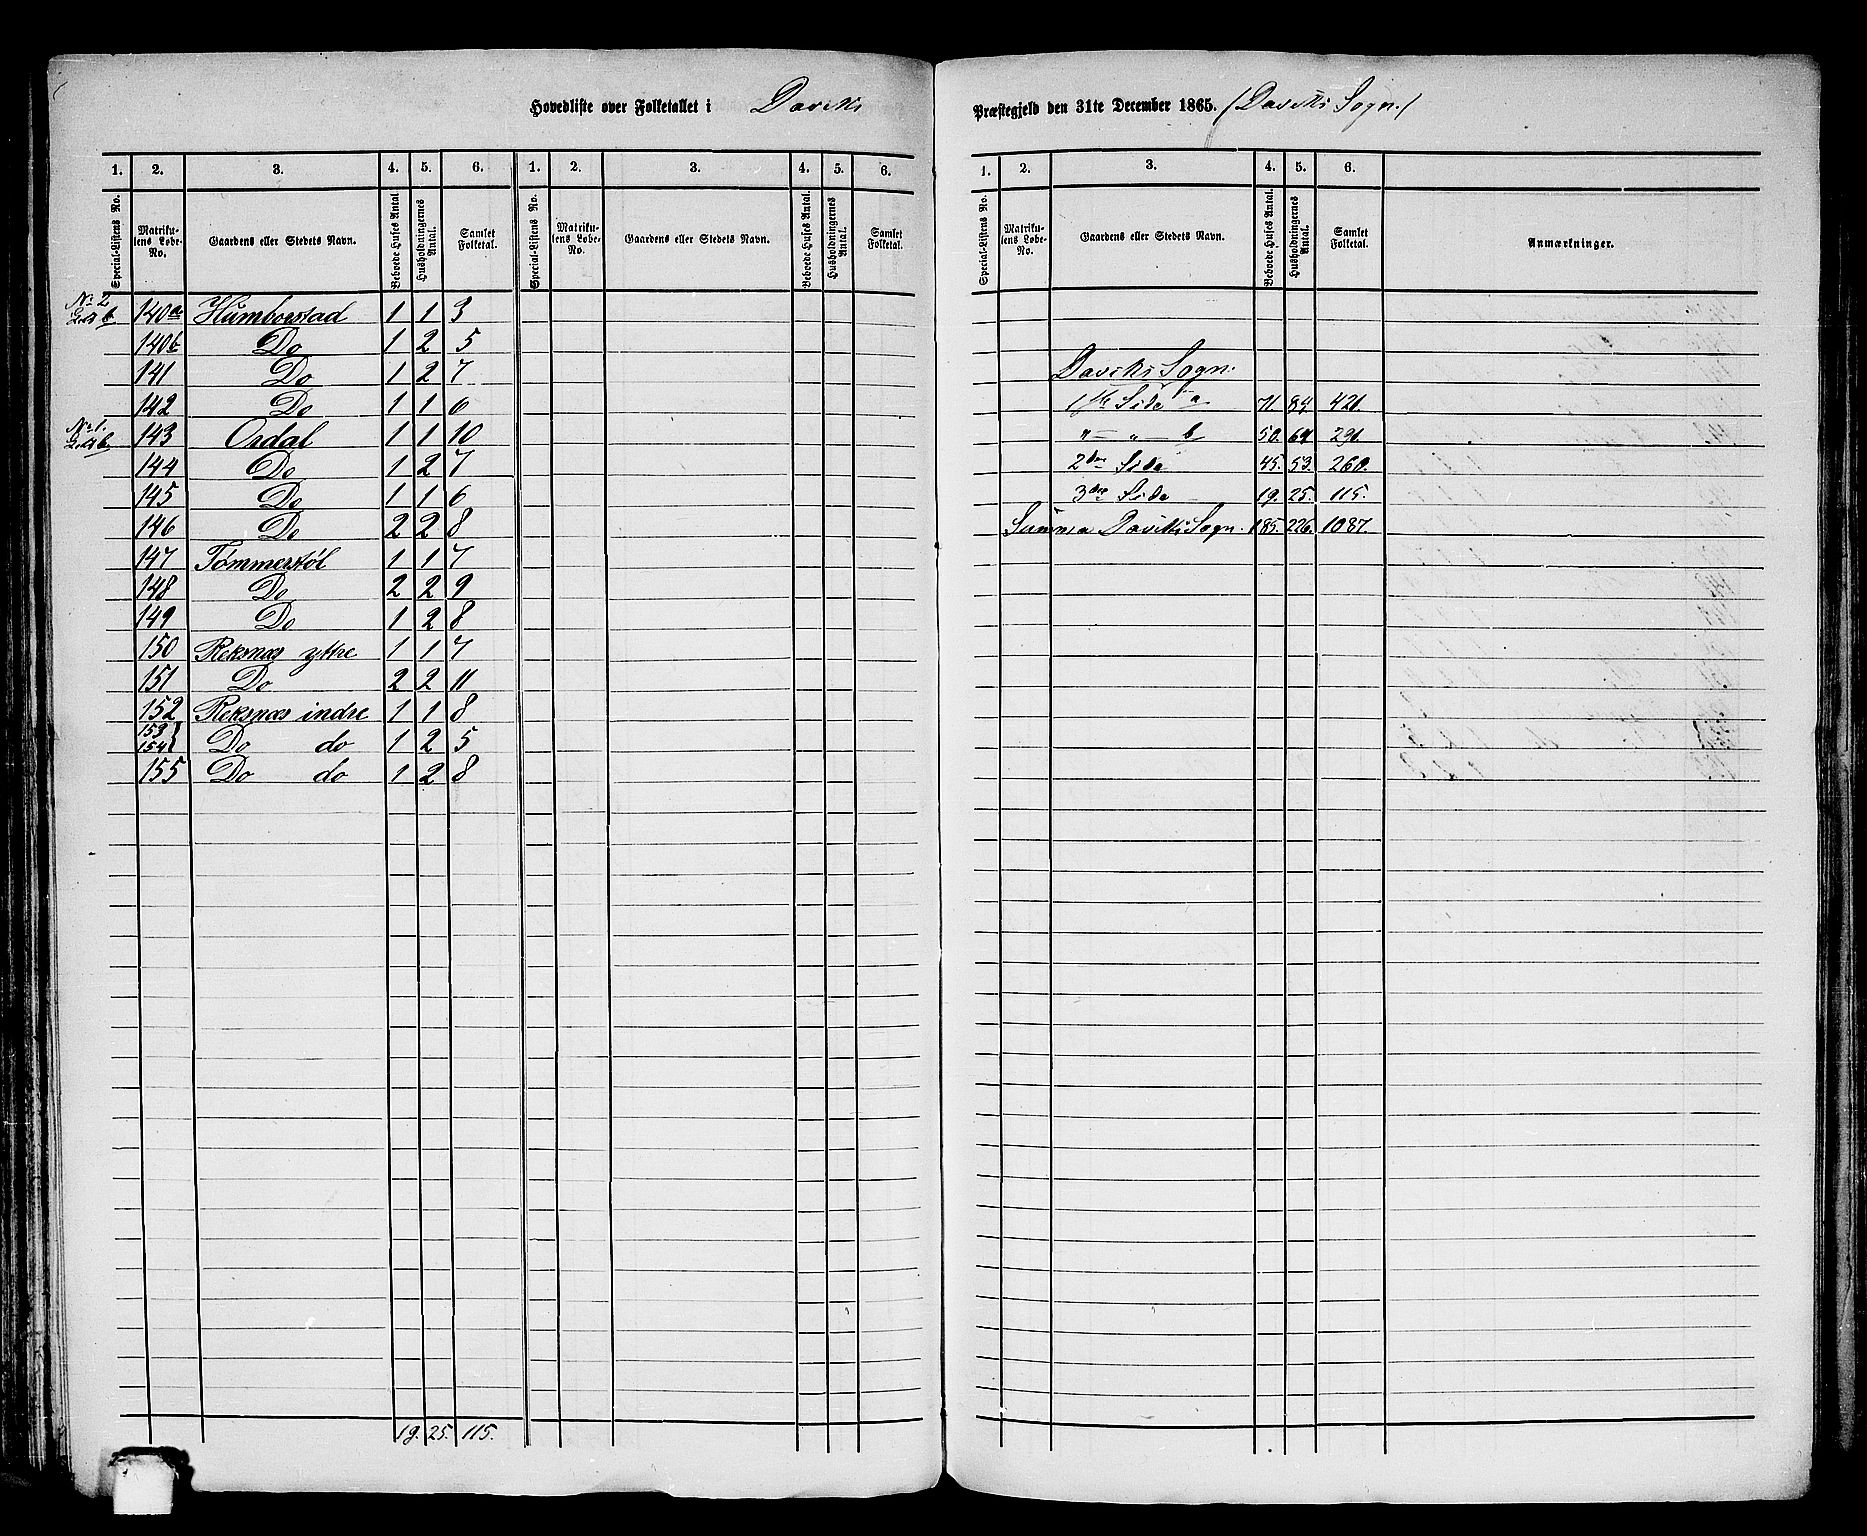 Hovedliste over Folketallet i Daviks Præstegjeld den 31te December 1865. (Daviks Sogn.)
1. 2. 3. 4. 5. 6. 1. 2. 3. 4. 5. 6.
Special-Listens No. Matrikulens Løbe-No. Gaardens eller Stedets Navn. Beboede Huses Antal. Husholdningernes Antal. Samlet Folketal. Special-Listens No. Matrikulens Løbe-No. Gaardens eller Stedets Navn. Beboede Huses Antal. Husholdningernes Antal. Samlet Folketal.
No 2 Litr b 140a Humborstad 1 1 3
140b Do 1 2 5
141 Do 1 2 7
142 Do 1 1 6
No 1. Litr b 143 Ordal 1 1 10
144 Do 1 2 7
145 Do 1 1 6
146 Do 2 2 8
147 Tømmerstøl 1 1 7
148 Do 2 2 9
149 Do 1 2 8
150 Reksnæs yttre 1 1 7
151 Do 2 2 11
152 Reksnæs indre 1 1 8
153 154 } Do do 1 2 5
155 Do do 1 2 8
19. 25. 115.
1. 2. 3. 4. 5. 6.
Special-Listens No. Matrikulens Løbe-No. Gaardens eller Stedets Navn. Beboede Huses Antal. Husholdningernes Antal. Samlet Folketal. Anmærkninger.
Daviks Sogn.
1ste Side a 71. 84. 421.
" — " — b 50. 64. 291.
2den Side 45. 53. 260.
3die Side 19. 25. 115.
Summa Daviks Sogn. 185. 226. 1087.